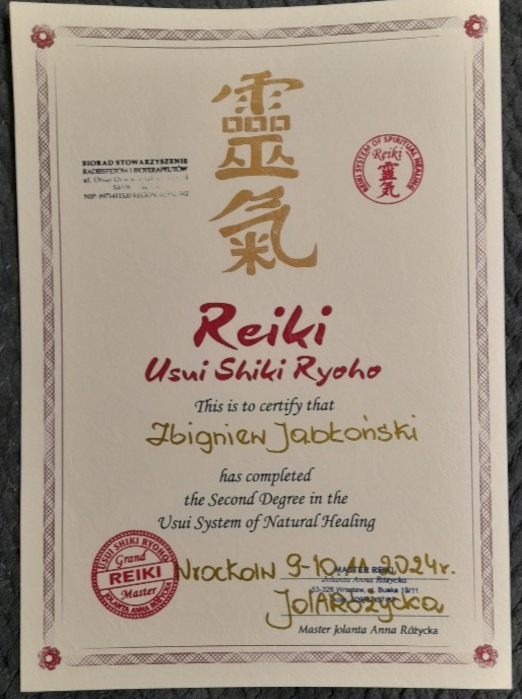 靈氣
BIORAD STOWARZYSZENIE
RADIESTETÓW I BIOTERAPEUTÓW
REIKI SYSTEM OF SPIRITUAL HEALING
Reiki
靈氣
Reiki
Usui Shiki Ryoho
This is to certify that
Zbigniew Jabłoński
has completed
the Second Degree in the
Usui System of Natural Healing
USUI SHIKI RYOHO
Grand
REIKI
Master
JOLANTA ANNA RÓŻYCKA
Wrocław 9-10.11.2024r.
MASTER REIKI
Jolanta Anna Różycka
53-326 Wrocław, ul. Buska
Jola Różycka
Master Jolanta Anna Różycka